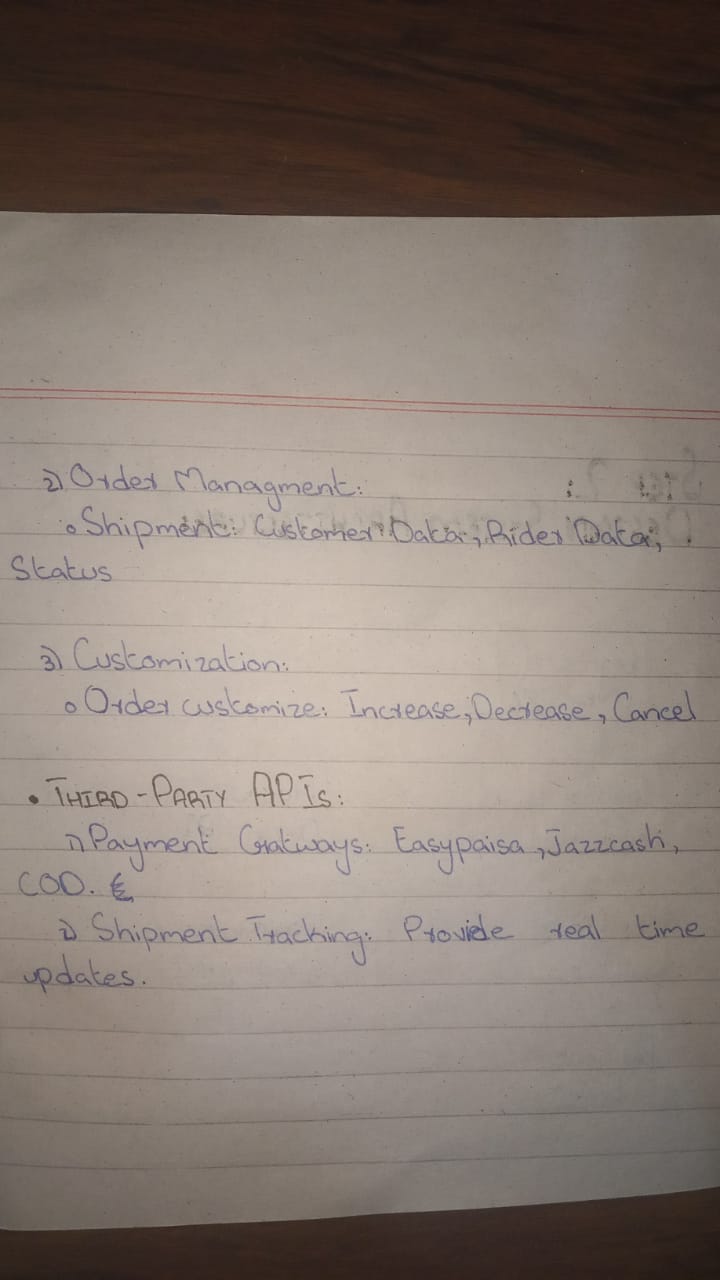 2) Order Managment:
o Shipment: Customer Data, Rider Data,
Status
3) Customization:
o Order customize: Increase, Decrease, Cancel
• THIRD-PARTY APIs:
1) Payment Gatways: Easypaisa, Jazzcash,
COD.
2) Shipment Tracking: Provide real time
updates.